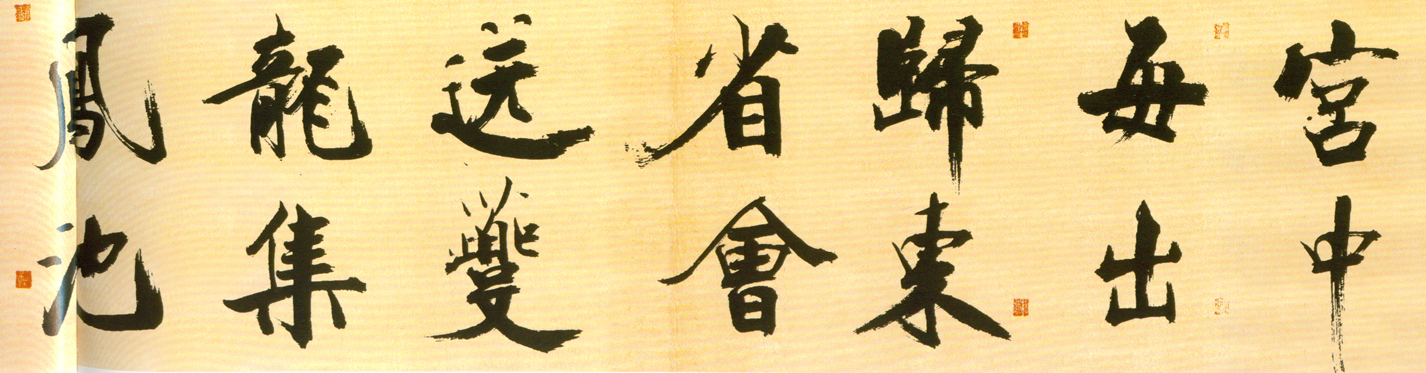 宮中
每出
歸東
省會
送夔
龍集
鳳池